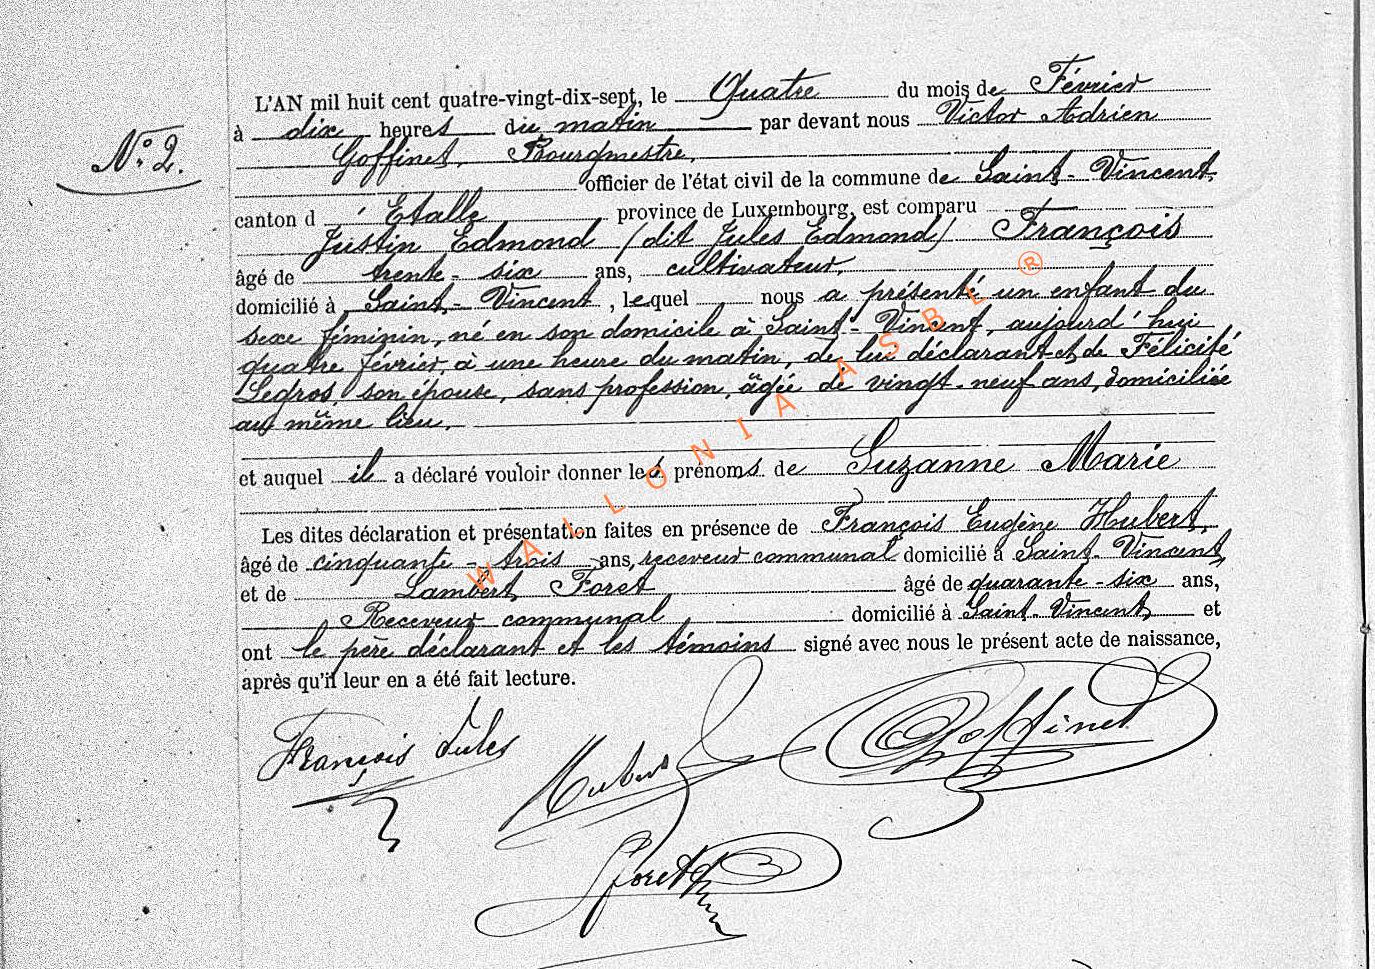 L'AN mil huit cent quatre-vingt-dix-sept, le Quatre du mois de Février
à dix heures du matin par devant nous Victor Adrien
N° 2.
Goffinet, Bourgmestre,
officier de l'état civil de la commune de Saint-Vincent,
canton d'Etalle province de Luxembourg, est comparu
Justin Edmond (dit Jules Edmond) François
âgé de trente-six ans, cultivateur,
domicilié à Saint-Vincent, lequel nous a présenté un enfant du
sexe féminin, né en son domicile à Saint-Vincent, aujourd'hui
quatre février, à une heure du matin, de lui déclarant et de Félicité
Legros, son épouse, sans profession, âgée de vingt-neuf ans, domiciliée
au même lieu.
et auquel il a déclaré vouloir donner les prénoms de Suzanne Marie
Les dites déclaration et présentation faites en présence de François Eugène Hubert,
âgé de cinquante-trois ans, receveur communal domicilié à Saint-Vincent
et de Lambert Foret âgé de quarante-six ans,
Receveur communal domicilié à Saint-Vincent, et
ont le père déclarant et les témoins signé avec nous le présent acte de naissance,
après qu'il leur en a été fait lecture.
François Jules
Hubert
Goffinet
Foret
WALLONIA ASBL ®